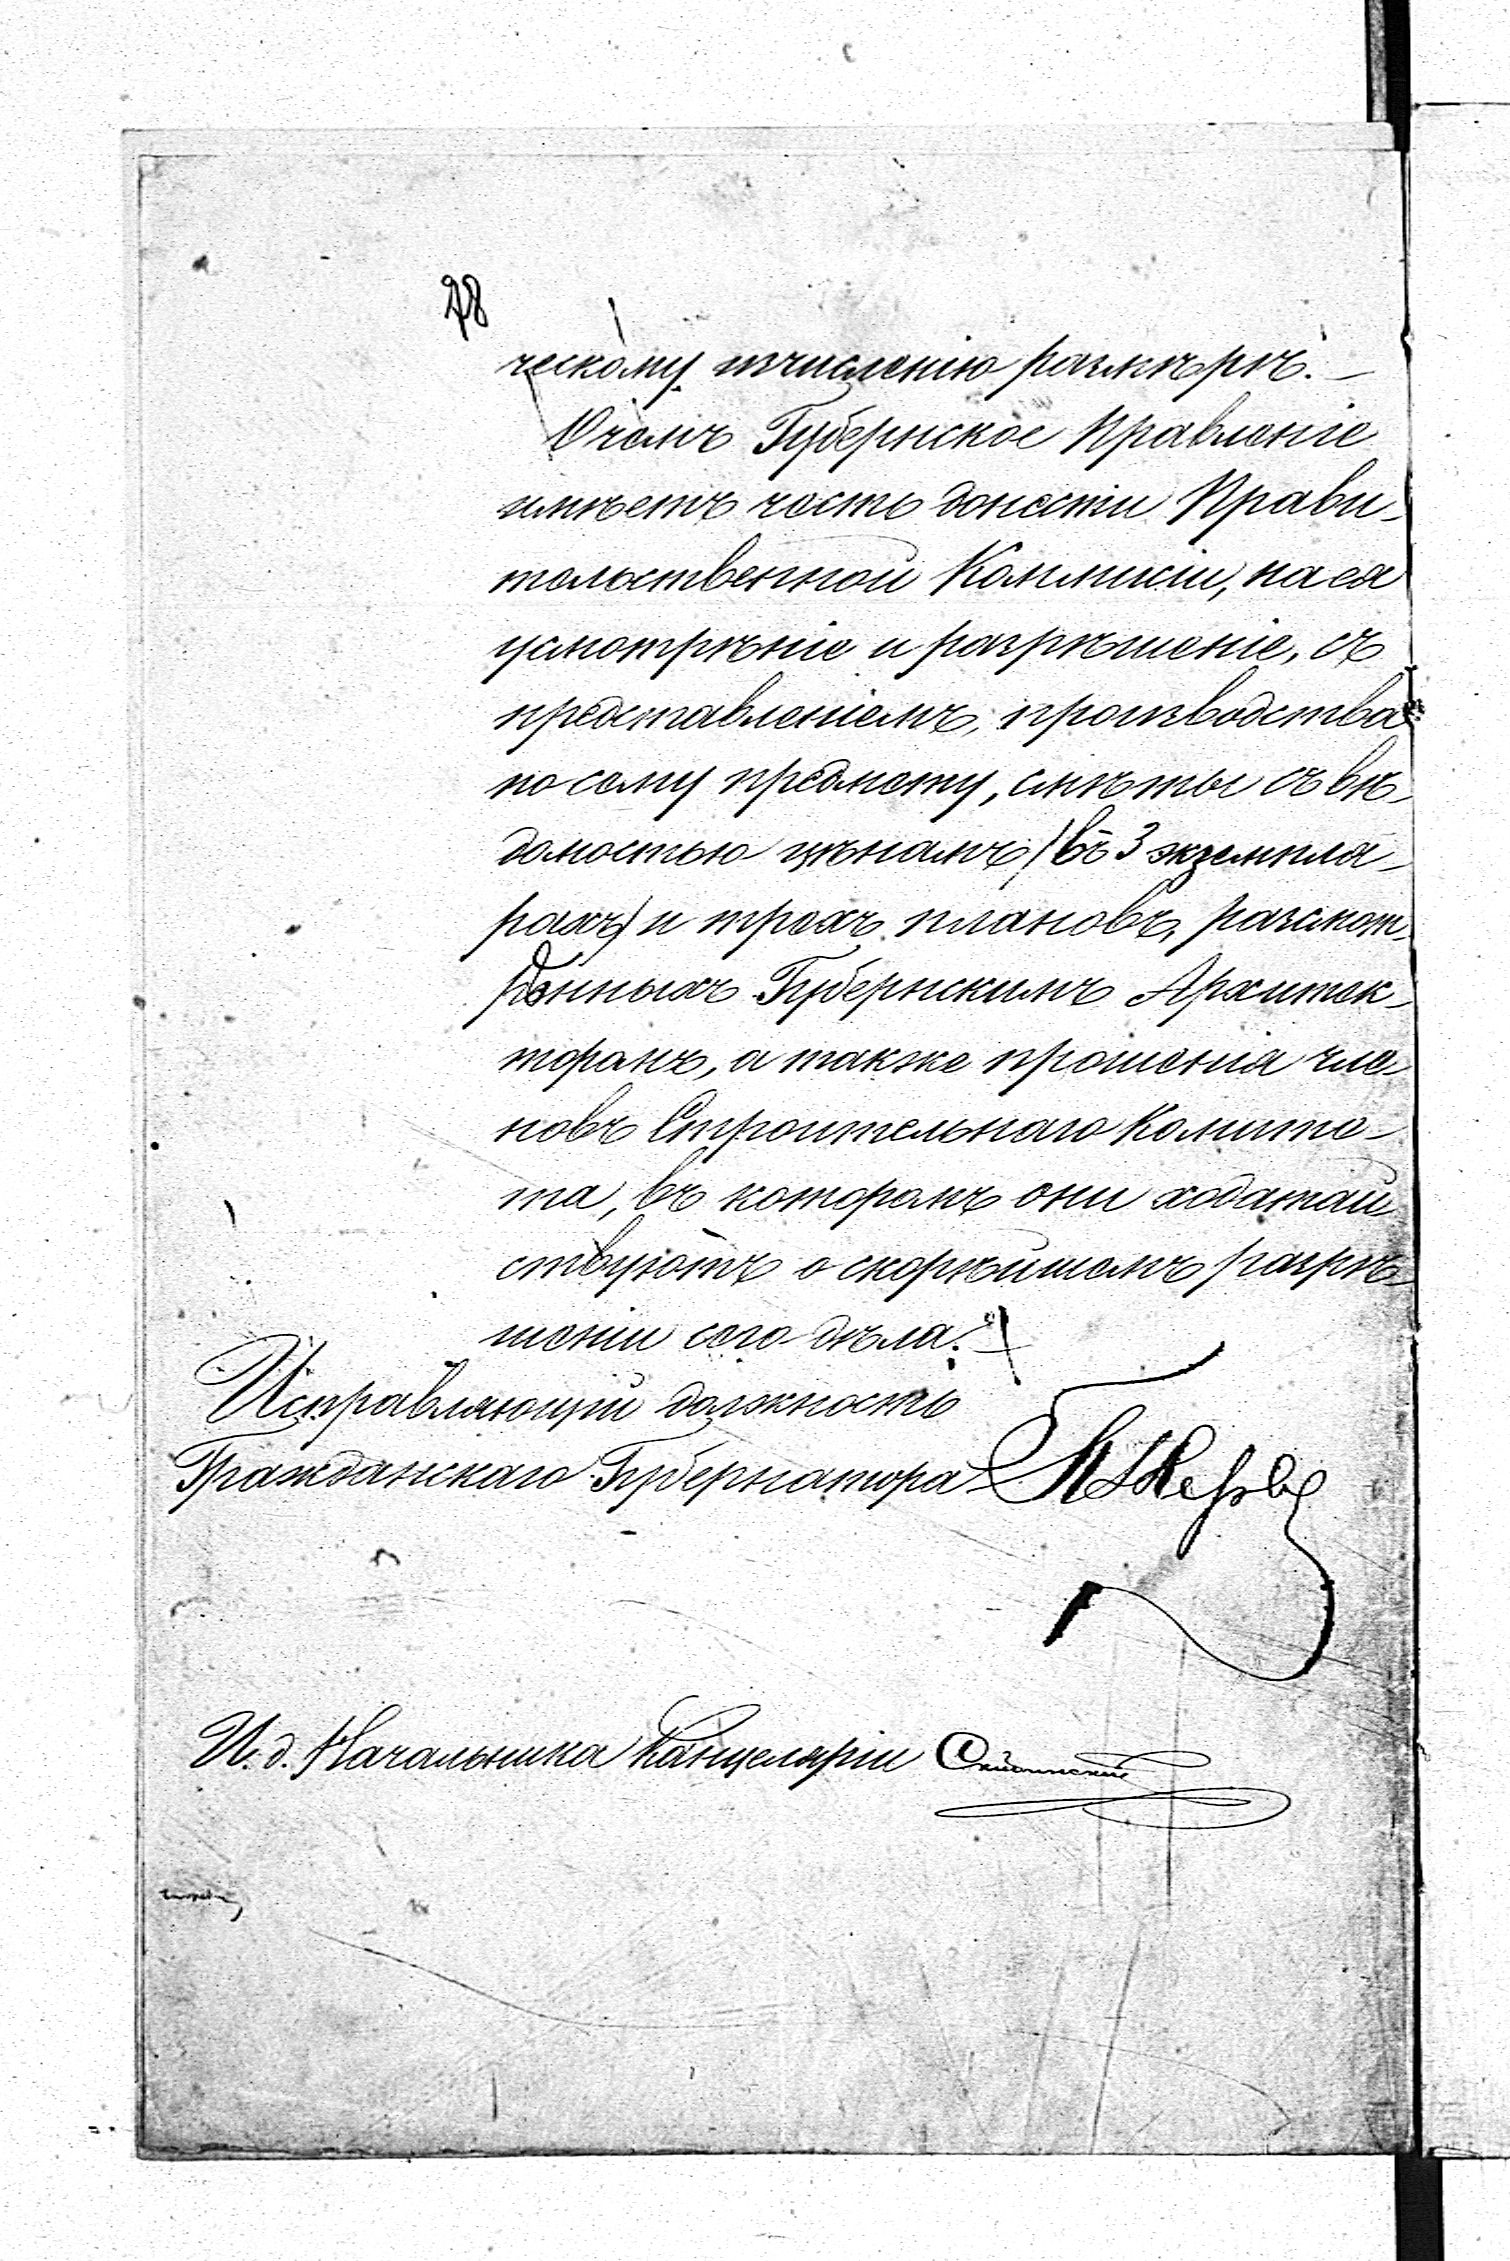 28
ческому изчисленію размѣрѣ. —
О чемъ Губернское Правленіе
имѣетъ честь донести Прави-
тельственной Коммисіи, на ея
усмотрѣніе и разрѣшеніе, съ
представленіемъ, производства
по сему предмету, смѣты съ вѣ-
домостью цѣнамъ (въ 3 экземпля-
рахъ) и трехъ плановъ, разсмот-
рѣнныхъ Губернскимъ Архитек-
торомъ, а также прошенія чле-
новъ Строительнаго Комите-
та, въ которомъ они ходатай-
ствуютъ о скорѣйшемъ разрѣ-
шеніи сего дѣла. —
Исправляющій должность
Гражданскаго Губернатора
И. д. Начальника Канцеляріи